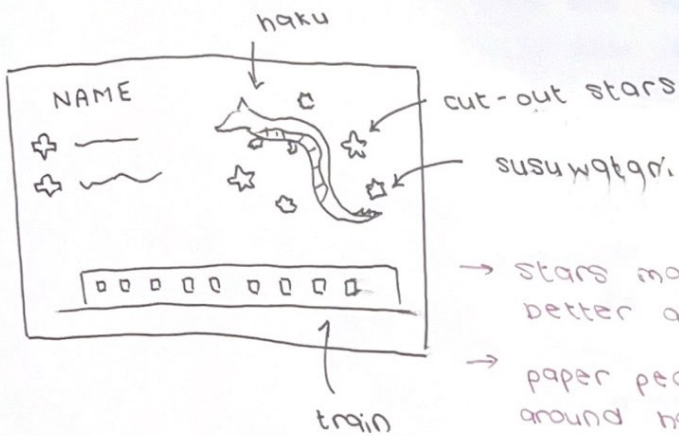 haku
NAME
cut-out stars
susuwatari
→ stars
better
→ paper
around
train